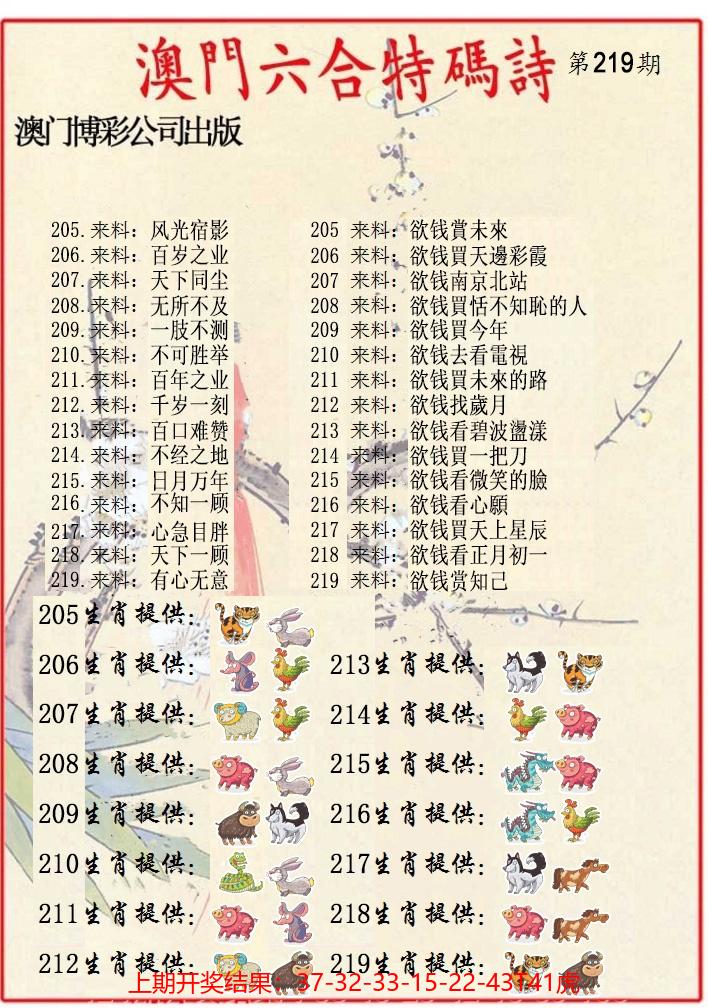 澳門六合特碼詩 第219期
澳门博彩公司出版
205.来料：风光宿影
206.来料：百岁之业
207.来料：天下同尘
208.来料：无所不及
209.来料：一肢不测
210.来料：不可胜举
211.来料：百年之业
212.来料：千岁一刻
213.来料：百口难赞
214.来料：不经之地
215.来料：日月万年
216.来料：不知一顾
217.来料：心急目胖
218.来料：天下一顾
219.来料：有心无意
205 来料：欲钱賞未來
206 来料：欲钱買天邊彩霞
207 来料：欲钱南京北站
208 来料：欲钱買恬不知恥的人
209 来料：欲钱買今年
210 来料：欲钱去看電視
211 来料：欲钱買未來的路
212 来料：欲钱找歲月
213 来料：欲钱看碧波盪漾
214 来料：欲钱買一把刀
215 来料：欲钱看微笑的臉
216 来料：欲钱看心願
217 来料：欲钱買天上星辰
218 来料：欲钱看正月初一
219 来料：欲钱赏知己
205生肖提供：
206生肖提供：
207生肖提供：
208生肖提供：
209生肖提供：
210生肖提供：
211生肖提供：
212生肖提供：
213生肖提供：
214生肖提供：
215生肖提供：
216生肖提供：
217生肖提供：
218生肖提供：
219生肖提供：
上期开奖结果：37-32-33-15-22-43T41虎